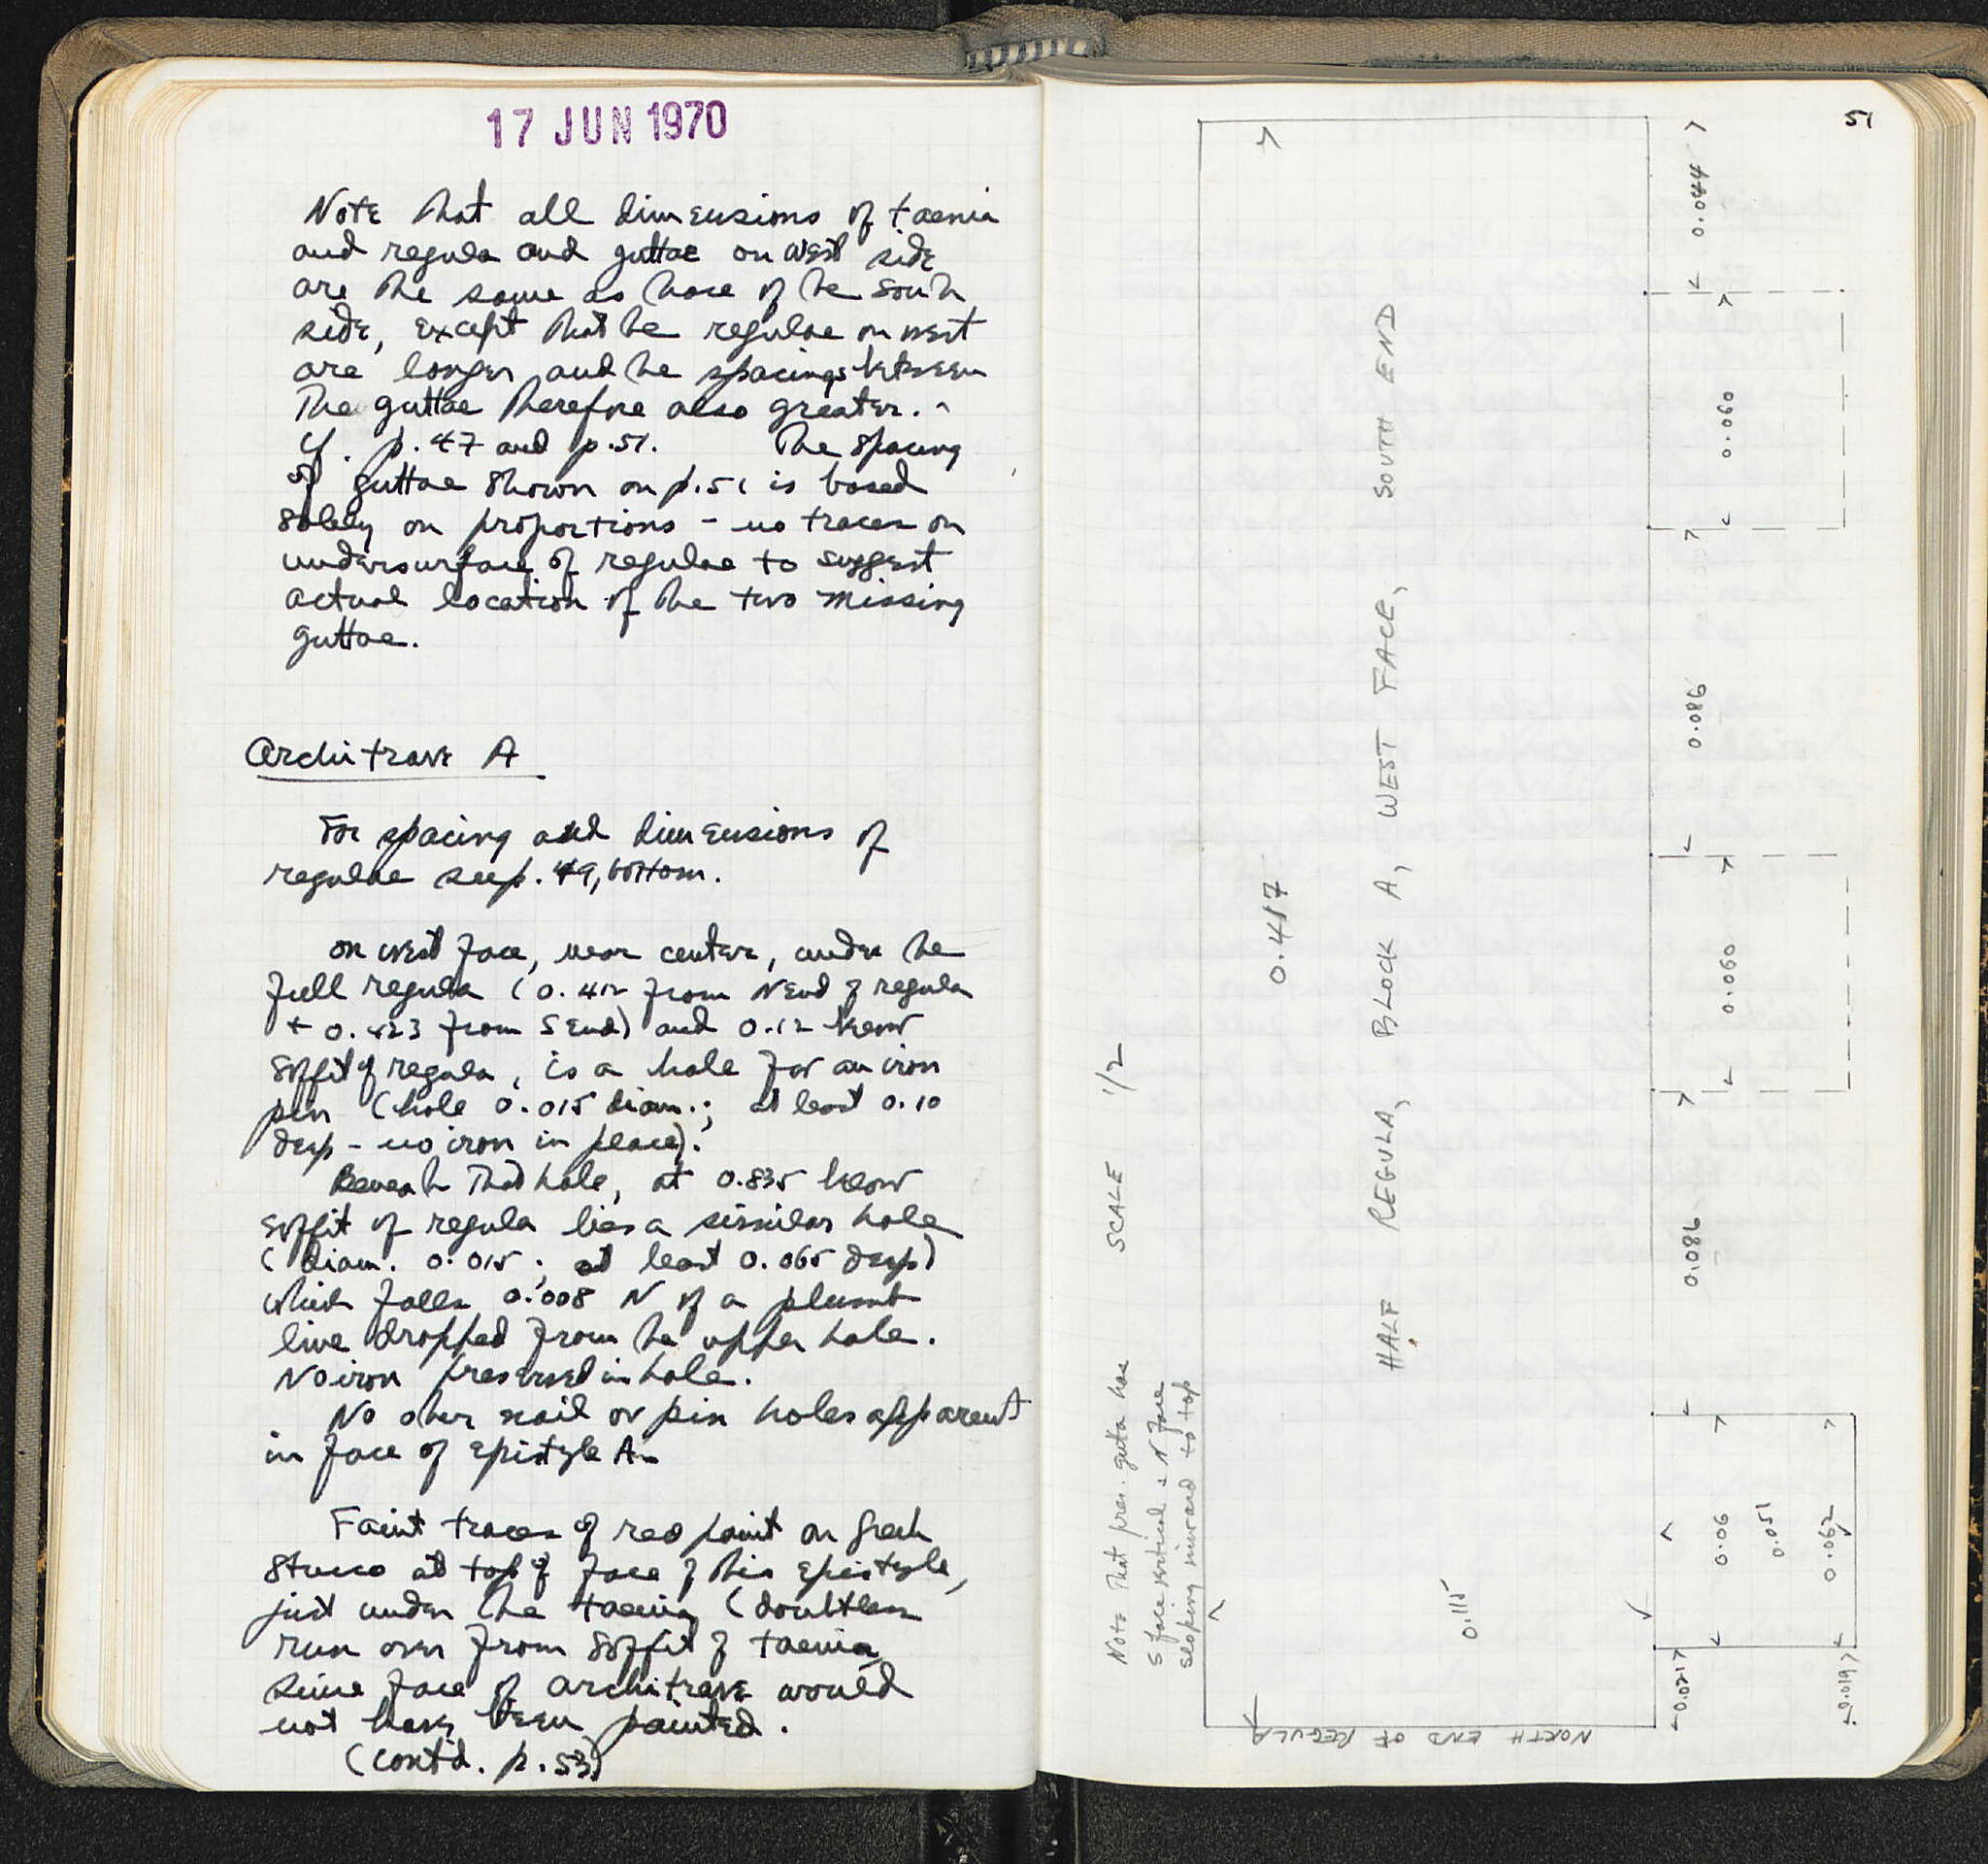 17 JUN 1970
Note that all dimensions of taenia
and regula and guttae on west side
are the same as those of the south
side, except that the regulae on west
are longer and the spacings between
the guttae therefore also greater.
cf. p. 47 and p. 51. The spacing
of guttae shown on p. 51 is based
solely on proportions - no traces on
undersurface of regulae to suggest
actual location of the two missing
guttae.
Architrave A
For spacing and dimensions of
regulae see p. 49, bottom.
On west face, near center, under the
full regula (0.412 from N end of regula
+ 0.423 from S end) and 0.12 below
soffit of regula, is a hole for an iron
pin (hole 0.015 diam.; at least 0.10
deep - no iron in place).
Beneath that hole, at 0.835 below
soffit of regula lies a similar hole
(diam. 0.015; at least 0.065 deep)
which falls 0.008 N of a plumb
line dropped from the upper hole.
No iron preserved in hole.
No other nail or pin holes apparent
in face of epistyle A.
Faint traces of red paint on
stucco at top of face of this epistyle,
just under the taenia (doubtless
run over from soffit of taenia
since face of architrave would
not have been painted.
(cont'd. p. 53)
51
0.044
0.060
0.086
0.060
0.086
0.06
0.051
0.062
0.021
0.019
0.417
0.115
HALF REGULA, BLOCK A, WEST FACE, SOUTH END
SCALE 1/2
Note that pres. gutta has
S face vertical + N face
sloping inward to top
NORTH END OF REGULA